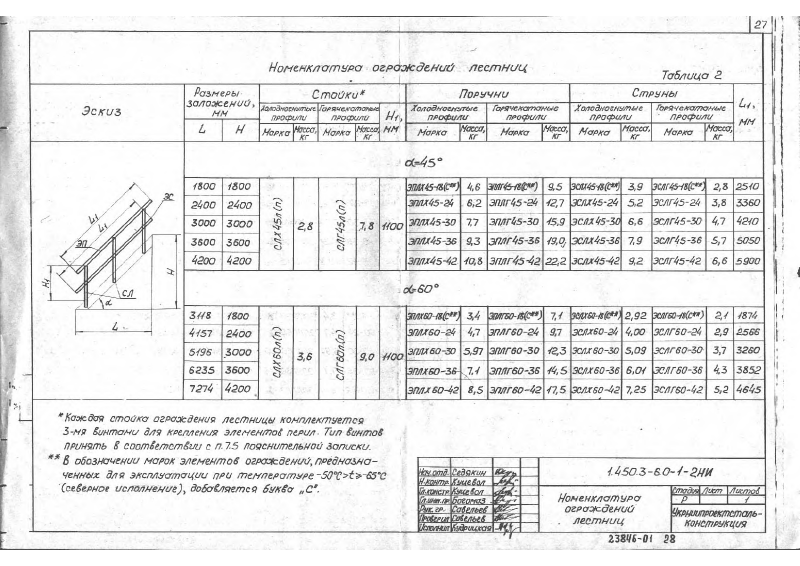 27
Номенклатура ограждений лестниц
Таблица 2
Эскиз
Размеры заложений, мм
L H
Стойки*
Холодногнутые профили Горячекатаные профили
Марка Масса, кг Марка Масса, кг
H₁, мм
Поручни
Холодногнутые профили Горячекатаные профили
Марка Масса, кг Марка Масса, кг
Струны
Холодногнутые профили Горячекатаные профили
Марка Масса, кг Марка Масса, кг
L₁, мм
α=45°
1800 1800 ЭПЛХ45-18(С**) 4,6 ЭПЛГ45-18(С**) 9,5 ЭСЛХ45-18(С**) 3,9 ЭСЛГ45-18(С**) 2,8 2510
2400 2400 ЭПЛХ45-24 6,2 ЭПЛГ45-24 12,7 ЭСЛХ45-24 5,2 ЭСЛГ45-24 3,8 3360
3000 3000 СЛХ45л(п) 2,8 СЛГ45л(п) 7,8 1100 ЭПЛХ45-30 7,7 ЭПЛГ45-30 15,9 ЭСЛХ45-30 6,6 ЭСЛГ45-30 4,7 4210
3600 3600 ЭПЛХ45-36 9,3 ЭПЛГ45-36 19,0 ЭСЛХ45-36 7,9 ЭСЛГ45-36 5,7 5050
4200 4200 ЭПЛХ45-42 10,8 ЭПЛГ45-42 22,2 ЭСЛХ45-42 9,2 ЭСЛГ45-42 6,6 5900
α=60°
3118 1800 ЭПЛХ60-18(С**) 3,4 ЭПЛГ60-18(С**) 7,1 ЭСЛХ60-18(С**) 2,92 ЭСЛГ60-18(С**) 2,1 1874
4157 2400 ЭПЛХ60-24 4,7 ЭПЛГ60-24 9,7 ЭСЛХ60-24 4,00 ЭСЛГ60-24 2,9 2566
5196 3000 СЛХ60л(п) 3,6 СЛГ60л(п) 9,0 1100 ЭПЛХ60-30 5,97 ЭПЛГ60-30 12,3 ЭСЛХ60-30 5,09 ЭСЛГ60-30 3,7 3260
6235 3600 ЭПЛХ60-36 7,1 ЭПЛГ60-36 14,5 ЭСЛХ60-36 6,01 ЭСЛГ60-36 4,3 3852
7274 4200 ЭПЛХ60-42 8,5 ЭПЛГ60-42 17,5 ЭСЛХ60-42 7,25 ЭСЛГ60-42 5,2 4645
L₁
L₁
ЭС
ЭП
H₁
СЛ
H
α
L
*Каждая стойка ограждения лестницы комплектуется
3-мя винтами для крепления элементов перил. Тип винтов
принять в соответствии с п.7.5 пояснительной записки.
** В обозначении марок элементов ограждений, предназна-
ченных для эксплуатации при температуре -50°C>t≥-65°C
(северное исполнение), добавляется буква „С".
Нач.отд. Седякин
Н.контр. Кушевол
Гл.констр Кушевол
Рук. гр. Савельев
Проверил Савельев
Исполнил Кудрицкая
1.450.3-6.0-1-2НИ
Номенклатура
ограждений
лестниц
Стадия Лист Листов
Р 1
Укрниипроектсталь-
конструкция
23846-01 28